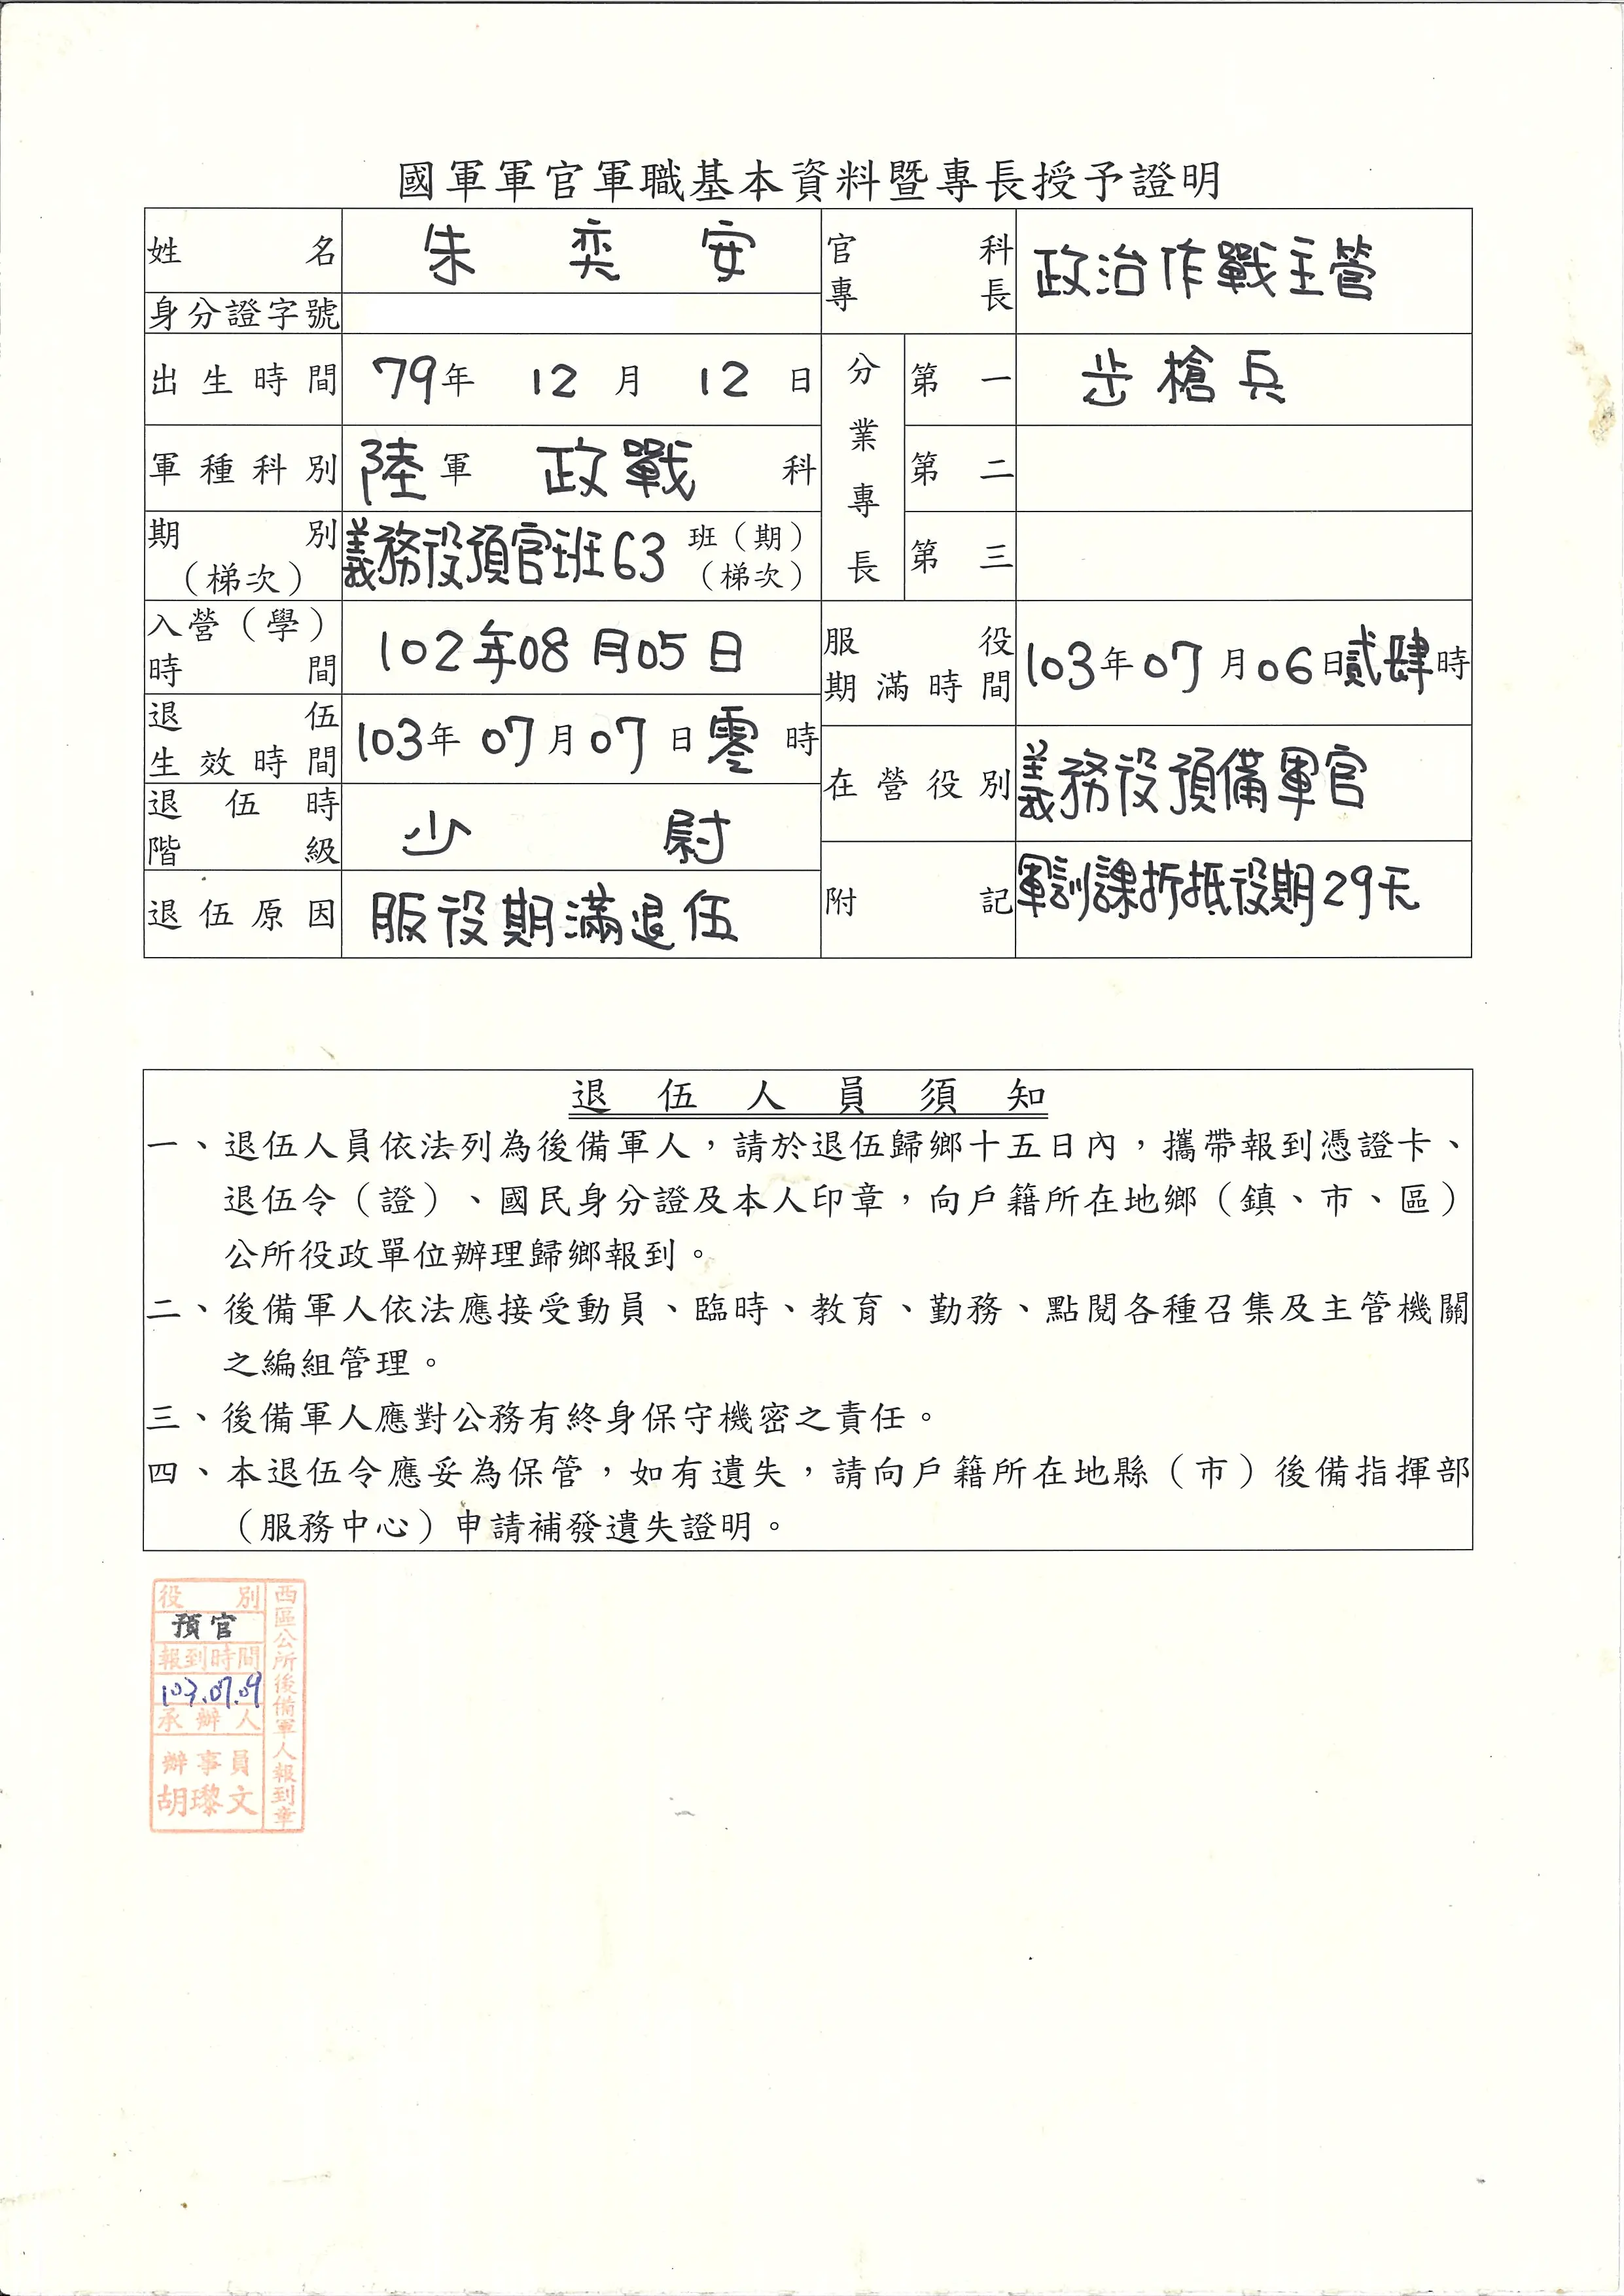 國軍軍官軍職基本資料暨專長授予證明
姓名 朱奕安
官科專長 政治作戰主管
身分證字號
出生時間 79年12月12日
分業專長 第一 步槍兵
軍種科別 陸軍 政戰科
第二
期別（梯次） 義務役預官班63班（期）（梯次）
第三
入營（學）時間 102年08月05日
服役期滿時間 103年07月06日貳肆時
退伍生效時間 103年07月07日零時
在營役別 義務役預備軍官
退伍時階級 少尉
附記 軍訓課折抵役期29天
退伍原因 服役期滿退伍
退伍人員須知
一、退伍人員依法列為後備軍人，請於退伍歸鄉十五日內，攜帶報到憑證卡、
退伍令（證）、國民身分證及本人印章，向戶籍所在地鄉（鎮、市、區）
公所役政單位辦理歸鄉報到。
二、後備軍人依法應接受動員、臨時、教育、勤務、點閱各種召集及主管機關
之編組管理。
三、後備軍人應對公務有終身保守機密之責任。
四、本退伍令應妥為保管，如有遺失，請向戶籍所在地縣（市）後備指揮部
（服務中心）申請補發遺失證明。
西區公所後備軍人報到章
役別
預官
報到時間
103.07.09
承辦人
辦事員
胡瓈文